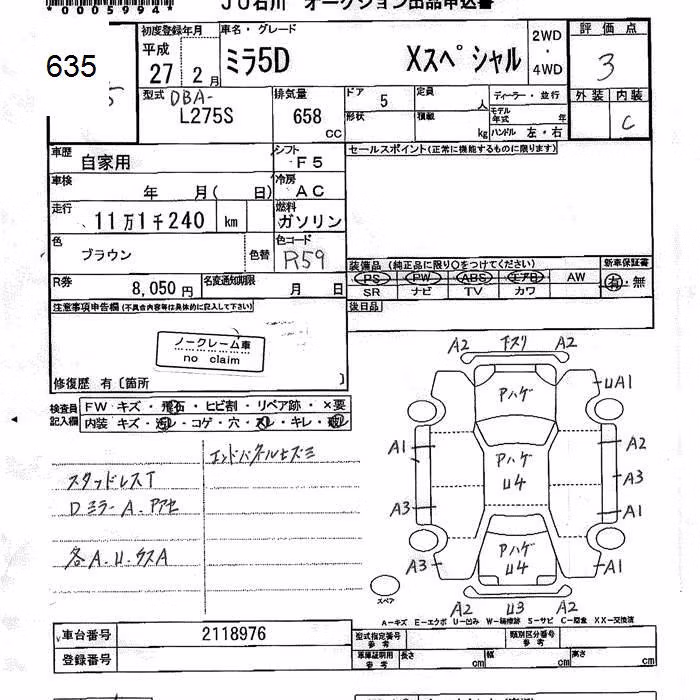 *00059940*
JU石川 オークション出品申込書
635
初度登録年月 車名・グレード 2WD・4WD 評価点
平成27 2月 ミラ5D Xスペシャル 3
型式 DBA-L275S 排気量 658 CC ドア 5 定員 人 ディーラー・並行 外装 内装
形状 積載 kg モデル年式 年 ハンドル 左・右 C
車歴 自家用 シフト F5 セールスポイント(正常に機能するものに限ります)
車検 年 月( 日) 冷房 AC
走行 11万1千240 km 燃料 ガソリン
色 ブラウン 色替 色コード R59
装備品 (純正品に限り○をつけてください) 新車保証書
PS PW ABS エアB AW 有・無
SR ナビ TV カワ
R券 8,050円 名変通知期限 月 日
注意事項申告欄(不具合内容等は具体的に記入して下さい) 後日品
ノークレーム車
no claim
修復歴 有〔箇所 〕
検査員記入欄 FW キズ・飛石・ヒビ割・リペア跡・×要
内装 キズ・汚レ・コゲ・穴・スレ・キレ・破レ
スタッドレスT
Dミラー A.アアセ
各A.U.ウスA
A2 下スリ A2
Pハゲ UA1
A1 Pハゲ U4 A2
A3
A3 A1
A3 Pハゲ U4 A1
A2 U3 A2
スペア
A-キズ E-エクボ U-凹み W-補修跡 S-サビ C-腐食 XX-交換済
車台番号 2118976 型式指定番号 参考 類別区分番号 参考
登録番号 車庫証明用 参考 長さ cm 幅 cm 高さ cm